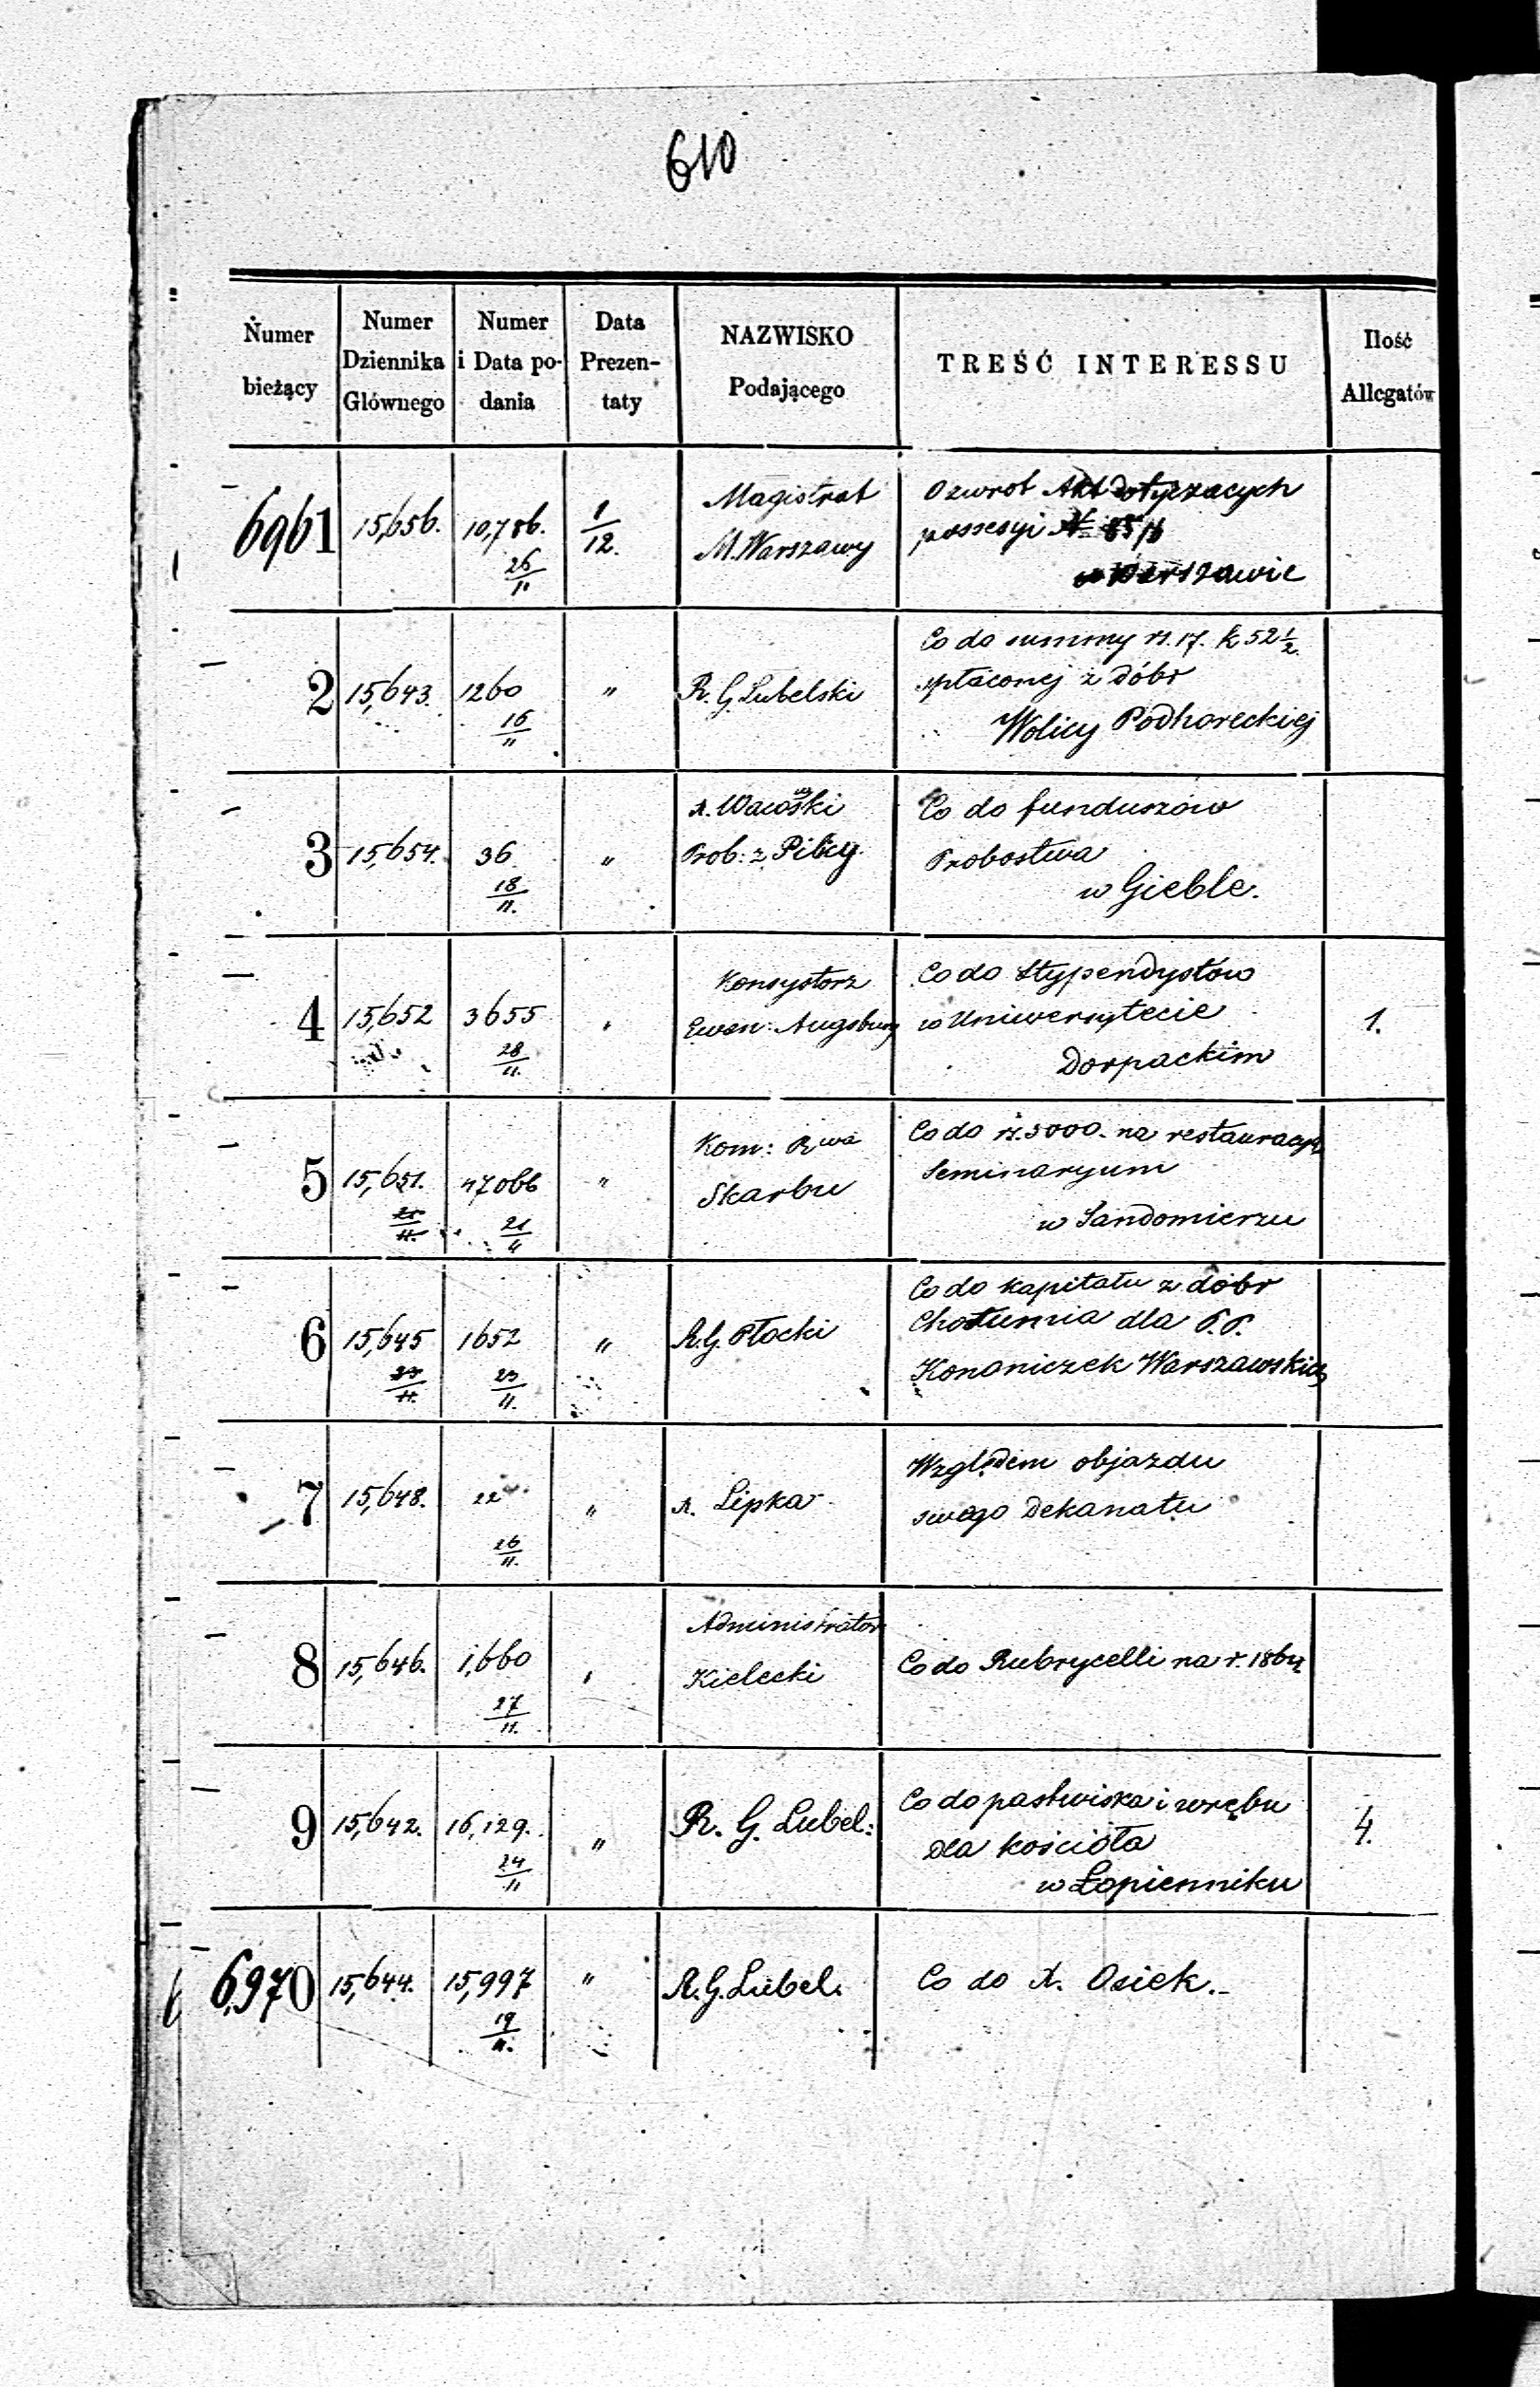 610
Numer bieżący
Numer Dziennika Głównego
Numer i Data podania
Data Prezentaty
NAZWISKO Podającego
TREŚĆ INTERESSU
Ilość Allegatów
6961 15,656. 10,786. 26/11 1/12. Magistrat
M. Warszawy
O zwrot Akt dotyczacych
possesyi N
w Warszawie
2 15,643. 1260 16/11 " R. G. Lubelski
Co do summy rs. 17. k 52 1/2.
spłaconej z dóbr
Wolicy Podhoreckiej
3 15,654. 36 18/11. "
Prob: z Pilicy.
Co do funduszów
Probostwa
w Gieble.
4 15,652 3655 28/11. " Konsystorz
Ewan: Augsburg
Co do Stypendystów
w Uniwersytecie
Dorpackim
1.
5 15,651. 47066 21/11 " Kom: Rwa
Skarbu
Co do rs. 3000. na restauracyą
Seminaryum
w Sandomierzu
6 15,645 1652 23/11. " R. G. Płocki
Co do kapitału z dóbr
Chotumia dla P.P.
Kanoniczek Warszawskich
7 15,648. 22 26/11. " X. Lipka
Względem objazdu
swego Dekanatu
8 15,646. 1,660 27/11. " Administrator
Kielecki
Co do Rubrycelli na r. 1864
9 15,642. 16,129. 24/11 " R. G. Lubel:
Co do pastwiska i wrębu
dla kościoła
w Łopienniku
4.
6,970 15,644. 15,997 19/11. " R. G. Lubel.
Co do X. Osiek.